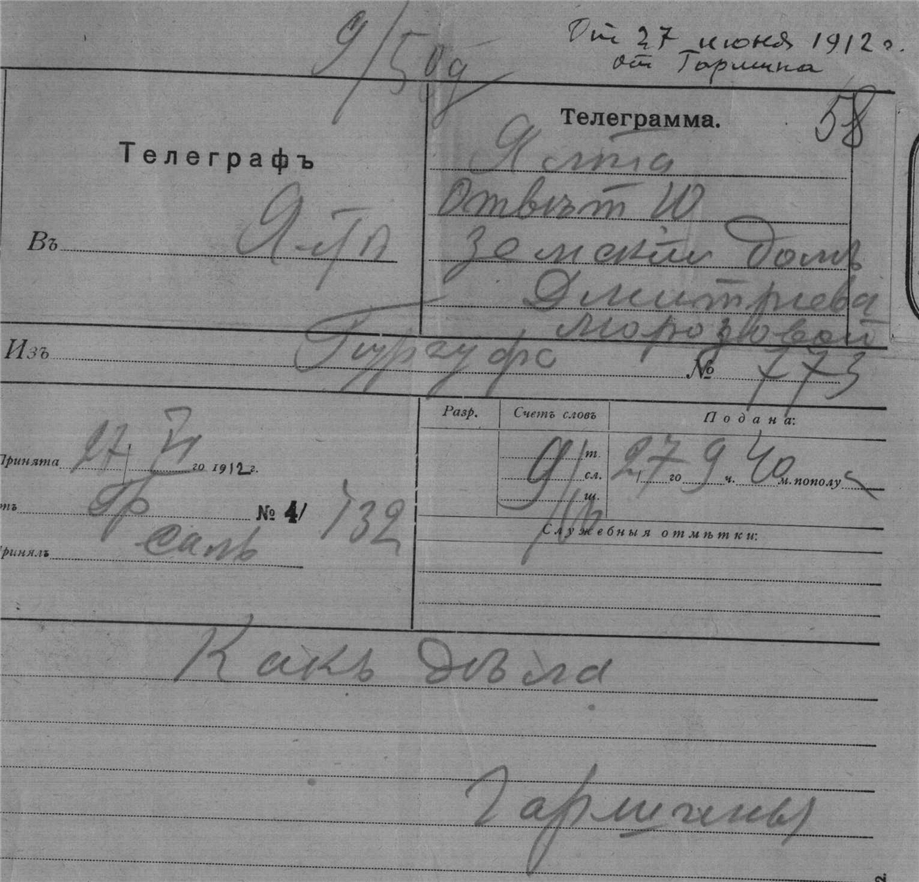 9/50
От 27 июня 1912 г.
от Гаршина
58
Телеграмма.
Телеграфъ
Ялта
Отвѣт 10
Въ Ялта
земскій домъ
Дмитріева
Морозовой
Изъ Гурзуфа
№ 773
Разр. Счетъ словъ Подана:
Принята 27/VI го 1912 г.
9/ т. сл. ш.
27 го 9 ч. 40 м. пополу
№ 4/ 132
Служебныя отмѣтки:
Какъ дѣла
Гаршины
2.